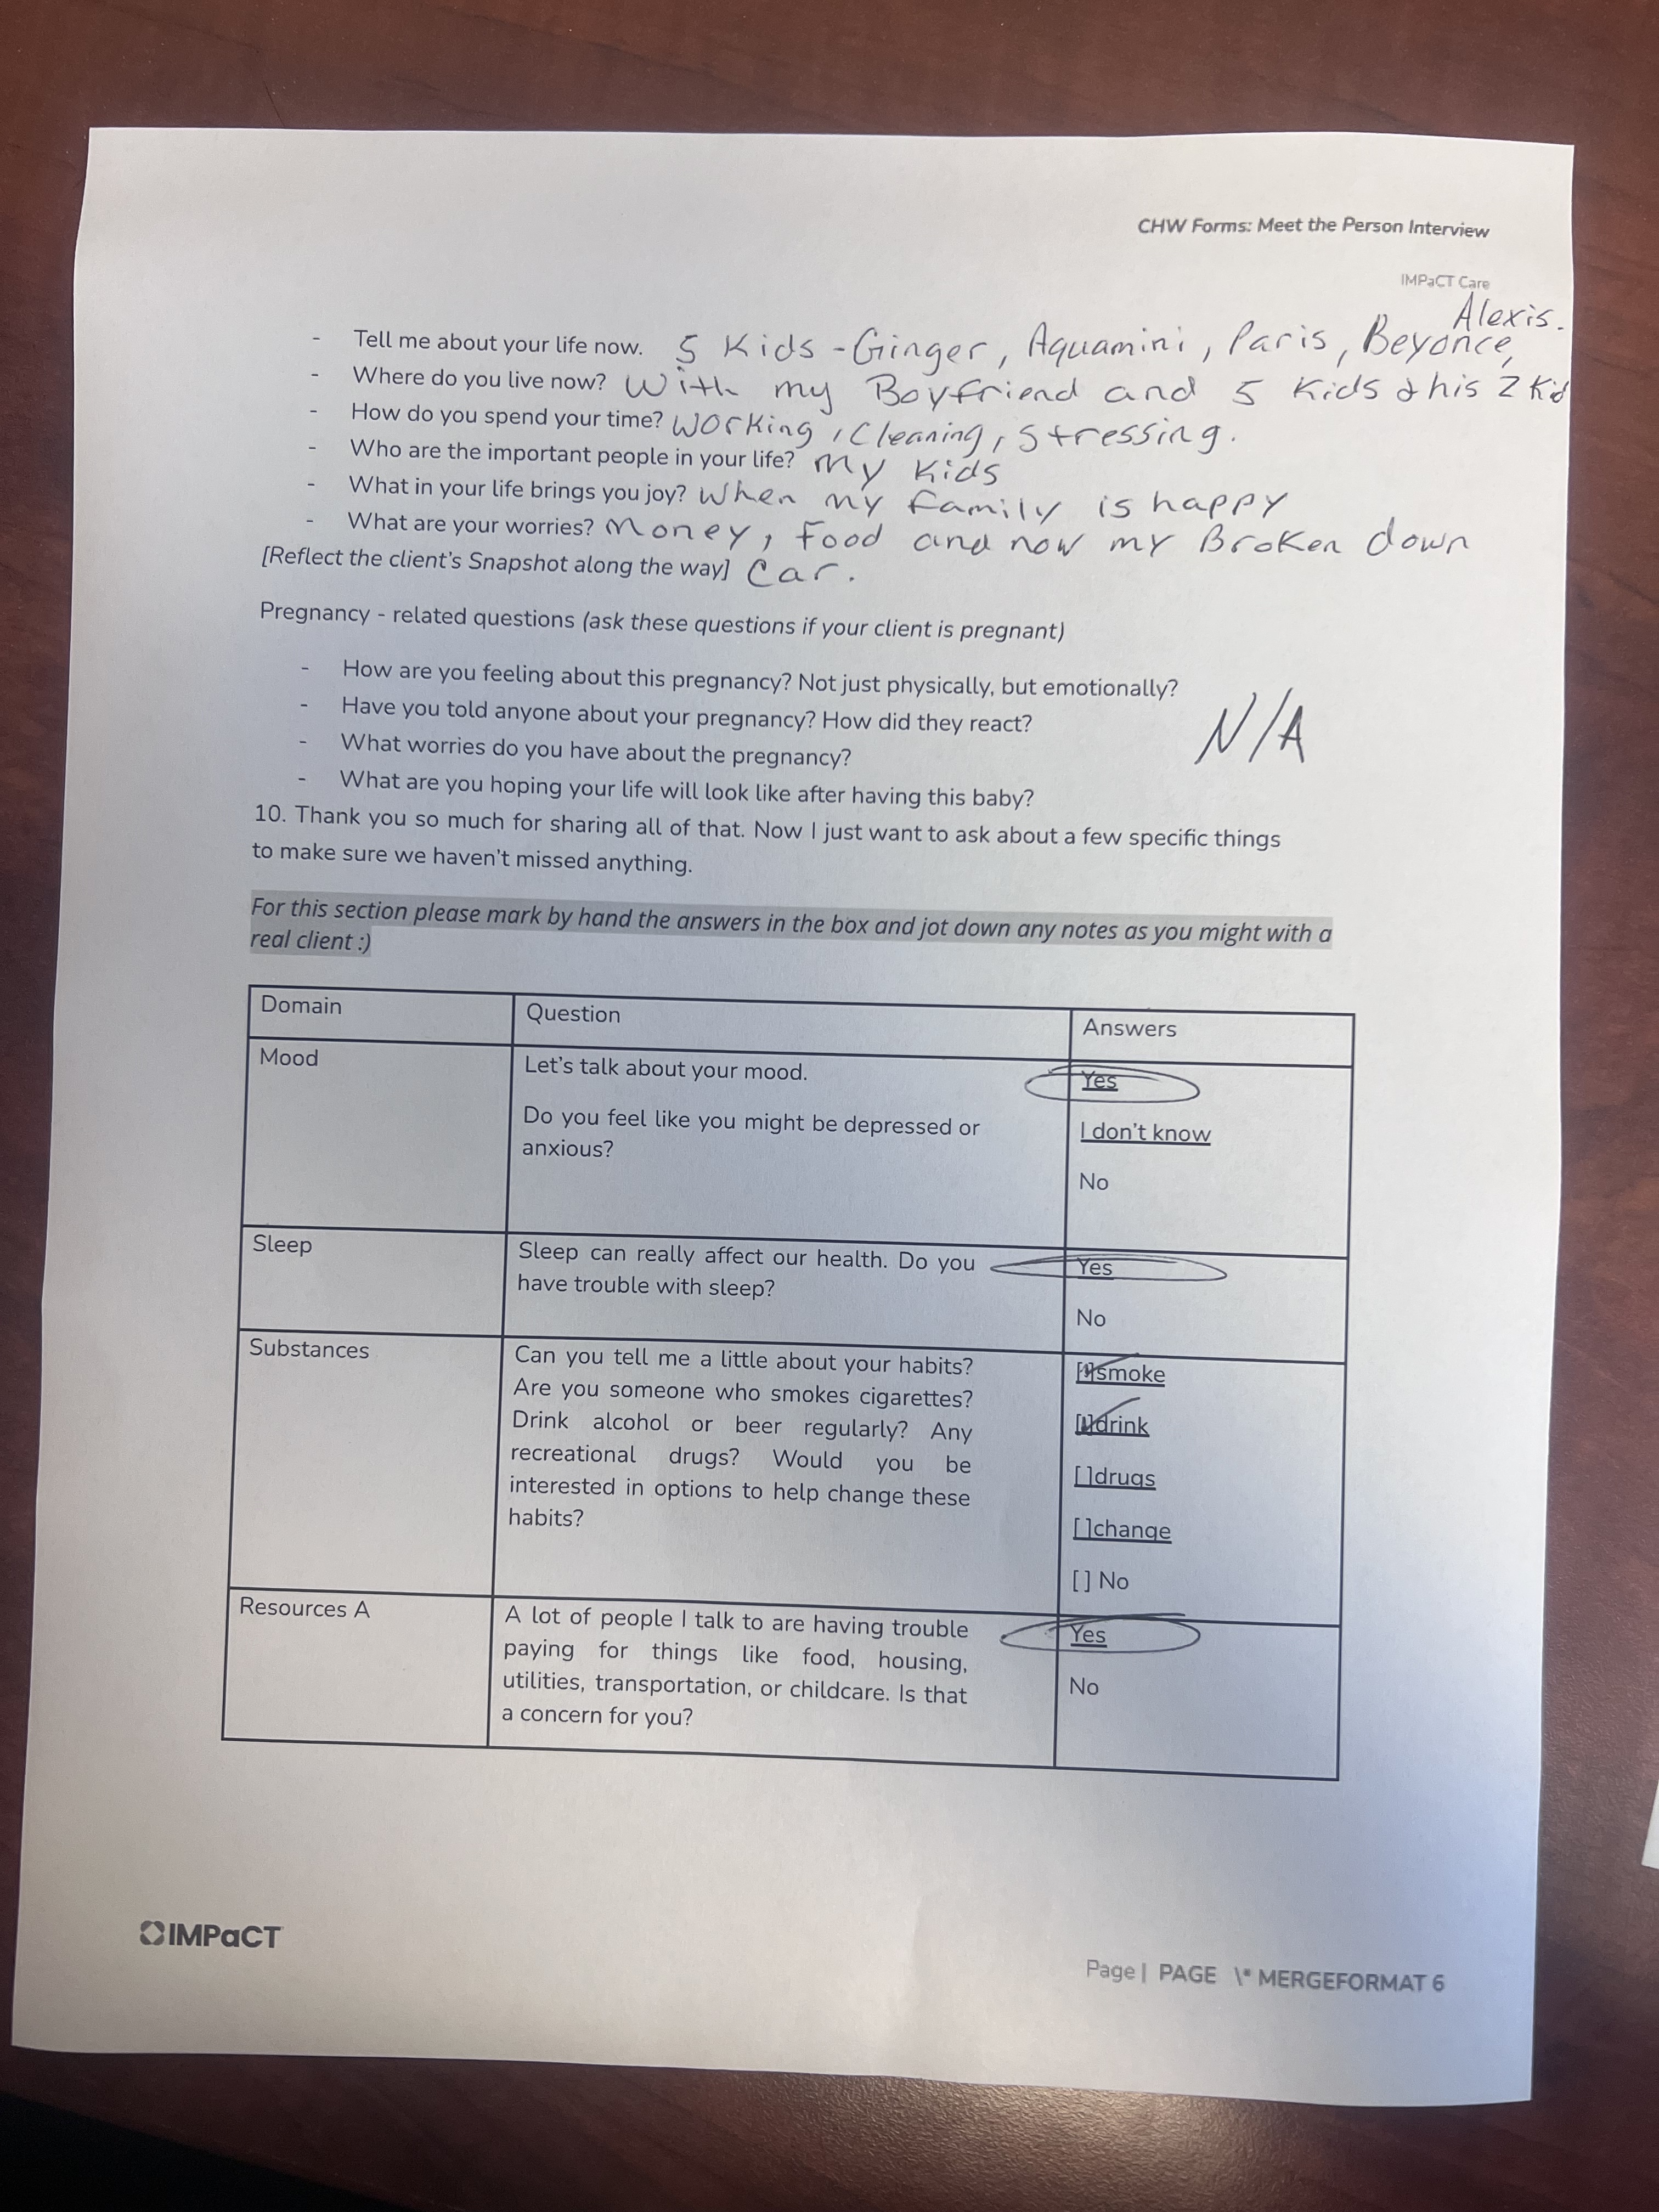 CHW Forms: Meet the Person Interview
IMPaCT Care
Alexis.
- Tell me about your life now. 5 Kids - Ginger, Aquamini, Paris, Beyonce,
- Where do you live now? With my Boyfriend and 5 Kids & his 2 Kid
- How do you spend your time? Working, Cleaning, Stressing.
- Who are the important people in your life? My Kids
- What in your life brings you joy? When my family is happy
- What are your worries? Money, Food and now my Broken down
[Reflect the client's Snapshot along the way] Car.
Pregnancy - related questions (ask these questions if your client is pregnant)
- How are you feeling about this pregnancy? Not just physically, but emotionally?
- Have you told anyone about your pregnancy? How did they react?
N/A
- What worries do you have about the pregnancy?
- What are you hoping your life will look like after having this baby?
10. Thank you so much for sharing all of that. Now I just want to ask about a few specific things
to make sure we haven't missed anything.
For this section please mark by hand the answers in the box and jot down any notes as you might with a
real client :)
Domain
Question
Answers
Mood
Let's talk about your mood.
Do you feel like you might be depressed or
anxious?
Yes
I don't know
No
Sleep
Sleep can really affect our health. Do you
have trouble with sleep?
Yes
No
Substances
Can you tell me a little about your habits?
Are you someone who smokes cigarettes?
Drink alcohol or beer regularly? Any
recreational drugs? Would you be
interested in options to help change these
habits?
[✓]smoke
[✓]drink
[ ]drugs
[ ]change
[ ] No
Resources A
A lot of people I talk to are having trouble
paying for things like food, housing,
utilities, transportation, or childcare. Is that
a concern for you?
Yes
No
IMPaCT
Page | PAGE \* MERGEFORMAT 6